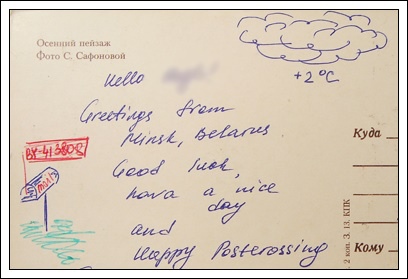 Осенний пейзаж
Фото С. Сафоновой
+2°C
Hello
Greetings from
Minsk, Belarus
Good luck,
hava a nice
day
and
Happy Postcrossing
BY-413808
mail
Куда
Кому
2 коп. З. 13. КПК